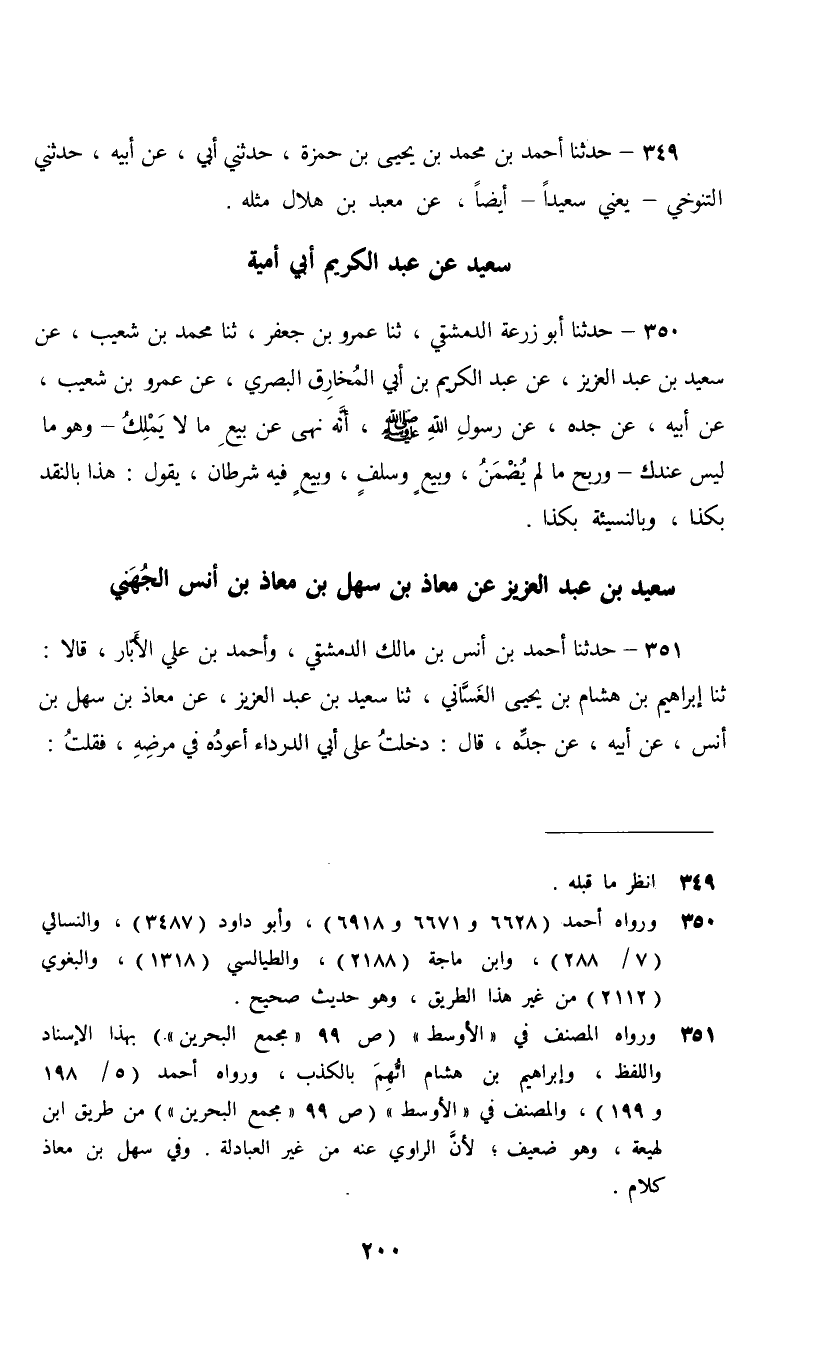 ٣٤٩ – حدثنا أحمد بن محمد بن يحيى بن حمزة ، حدثني أبي ، عن أبيه ، حدثني
التنوخي – يعني سعيداً – أيضاً ، عن معبد بن هلال مثله .
سعيد عن عبد الكريم أبي أمية
٣٥٠ – حدثنا أبو زرعة الدمشقي ، ثنا عمرو بن جعفر ، ثنا محمد بن شعيب ، عن
سعيد بن عبد العزيز ، عن عبد الكريم بن أبي المُخارِق البصري ، عن عمرو بن شعيب ،
عن أبيه ، عن جده ، عن رسولِ اللهِ ﷺ ، أنَّه نهى عن بيعِ ما لا يَمْلِكُ – وهو ما
ليس عندك – وربح ما لم يُضْمَنُ ، وبيعٍ وسلفٍ ، وبيعٍ فيه شرطان ، يقول : هذا بالنقد
بكذا ، وبالنسيئة بكذا .
سعيد بن عبد العزيز عن معاذ بن سهل بن معاذ بن أنس الجُهَني
٣٥١ – حدثنا أحمد بن أنس بن مالك الدمشقي ، وأحمد بن علي الأَبَّار ، قالا :
ثنا إبراهيم بن هشام بن يحيى الغَسَّاني ، ثنا سعيد بن عبد العزيز ، عن معاذ بن سهل بن
أنس ، عن أبيه ، عن جدِّه ، قال : دخلتُ على أبي الدرداء أعودُه في مرضِهِ ، فقلتُ :
٣٤٩ انظر ما قبله .
٣٥٠ ورواه أحمد (٦٦٢٨ و ٦٦٧١ و ٦٩١٨) ، وأبو داود (٣٤٨٧) ، والنسائي
(٧ / ٢٨٨) ، وابن ماجة (٢١٨٨) ، والطيالسي (١٣١٨) ، والبغوي
(٢١١٢) من غير هذا الطريق ، وهو حديث صحيح .
٣٥١ ورواه المصنف في « الأوسط » (ص ٩٩ « مجمع البحرين ») بهذا الإسناد
واللفظ ، وإبراهيم بن هشام اتُّهِمَ بالكذب ، ورواه أحمد (٥ / ١٩٨
و ١٩٩) ، والمصنف في « الأوسط » (ص ٩٩ « مجمع البحرين ») من طريق ابن
لهيعة ، وهو ضعيف ؛ لأنَّ الراوي عنه من غير العبادلة . وفي سهل بن معاذ
كلام .
٢٠٠